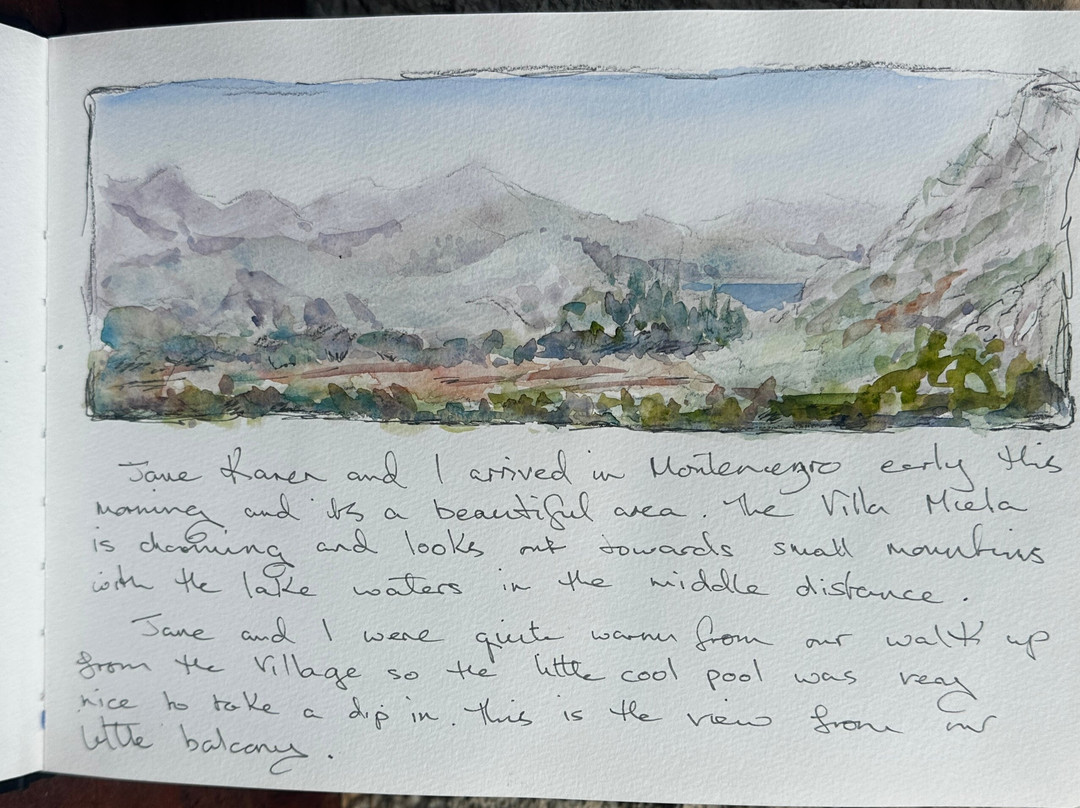 Jane Karen and I arrived in Montenegro early this
morning and it's a beautiful area. The Villa Miela
is charming and looks out towards small mountains
with the lake waters in the middle distance.
Jane and I were quite warm from our walk up
from the village so the little cool pool was very
nice to take a dip in. This is the view from our
little balcony.